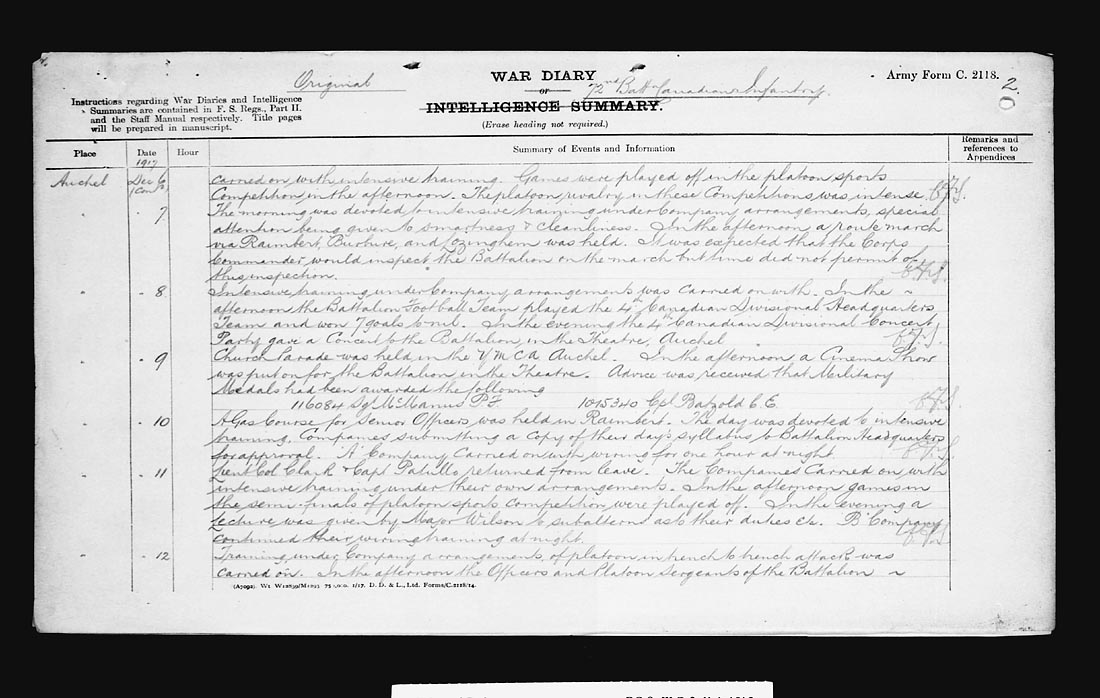 Original
WAR DIARY
or
INTELLIGENCE SUMMARY.
(Erase heading not required.)
72nd Batt Canadian Infantry.
Army Form C. 2118.
2.
Instructions regarding War Diaries and Intelligence
Summaries are contained in F. S. Regs., Part II.
and the Staff Manual respectively. Title pages
will be prepared in manuscript.
Place Date Hour Summary of Events and Information Remarks and references to Appendices
1917
Auchel Dec 6 carried on with intensive training. Games were played off in the platoon sports
(Cont'd) Competition in the afternoon. The platoon rivalry in these Competitions was intense.
" - 7 The morning was devoted to intensive training under Company arrangements, special
attention being given to smartness & cleanliness. In the afternoon a route march
via Raimbert, Burbure, and Lozinghem was held. It was expected that the Corps
Commander would inspect the Battalion on the march but time did not permit of
this inspection.
" - 8 Intensive training under Company arrangements was carried on with. In the ~
afternoon the Battalion Football Team played the 4th Canadian Divisional Headquarters
Team and won 7 goals to nil. In the evening the 4th Canadian Divisional Concert
Party gave a Concert to the Battalion, in the Theatre, Auchel
" - 9 Church Parade was held in the Y M C A Auchel. In the afternoon a Cinema Show
was put on for the Battalion in the Theatre. Advice was received that Military
Medals had been awarded the following
116084 Sgt McManus P.F. 1015340 Cpl Batzold C.E.
" - 10 A Gas Course for Senior Officers was held in Raimbert. The day was devoted to intensive
training, Companies submitting a copy of their day's syllabus to Battalion Headquarters
for approval. "A" Company Carried on with wiring for one hour at night
" - 11 Lieut Col Clark & Capt Patullo returned from leave. The Companies Carried on with
intensive training under their own arrangements. In the afternoon games in
the semi-finals of platoon sports competition were played off. In the evening a
lecture was given by Major Wilson to subalterns as to their duties etc. "B" Company
continued their wiring training at night.
" - 12 Training under Company arrangements of platoon in trench to trench attack was
carried on. In the afternoon the Officers and Platoon Sergeants of the Battalion ~